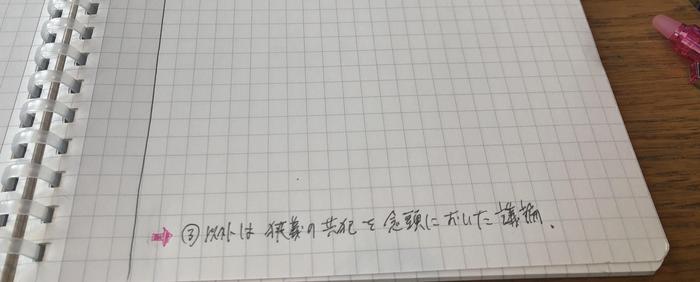 → ③以外は狭義の共犯を念頭においた議論.